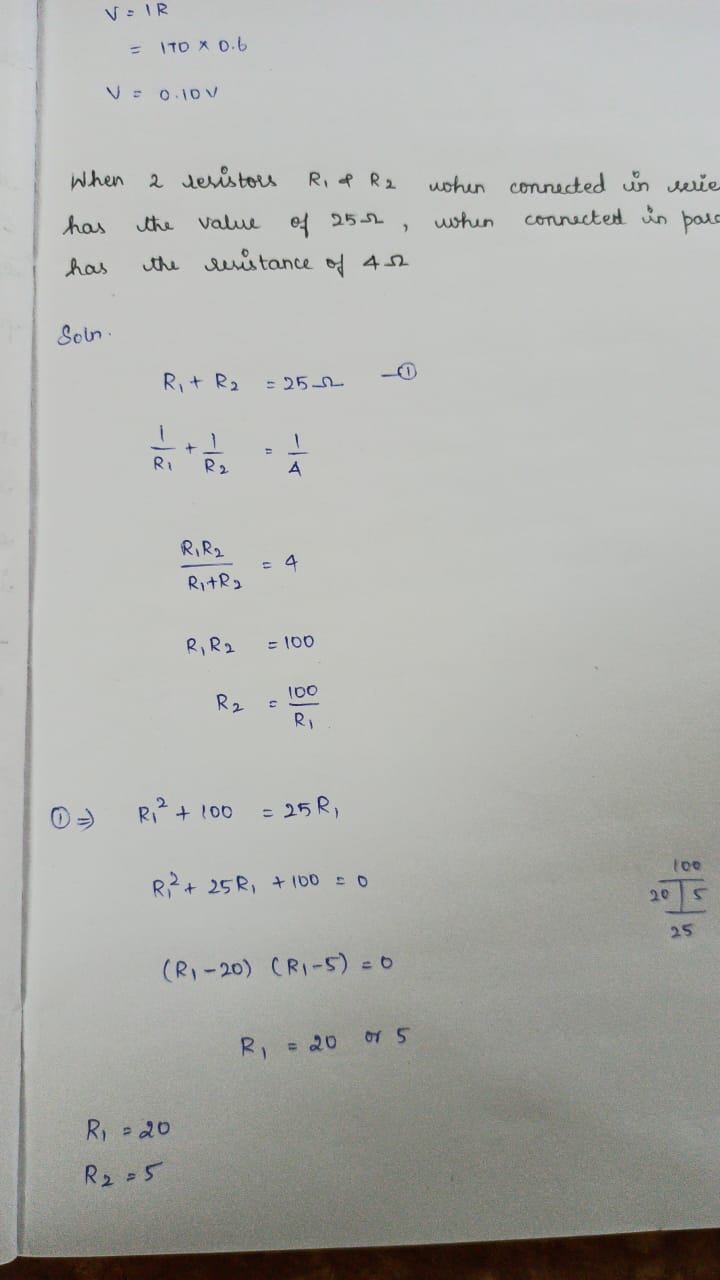 V = IR
= 170 × 0.6
V = 0.10V
When 2 resistors R₁ & R₂ when connected in
has the value of 25Ω, when connected in
has the resistance of 4Ω
Soln.
R₁ + R₂ = 25Ω —①
1/R₁ + 1/R₂ = 1/4
R₁R₂/R₁+R₂ = 4
R₁R₂ = 100
R₂ = 100/R₁
① ⇒ R₁² + 100 = 25R₁
R₁² + 25R₁ + 100 = 0
100
20 | 5
25
(R₁-20) (R₁-5) = 0
R₁ = 20 or 5
R₁ = 20
R₂ = 5